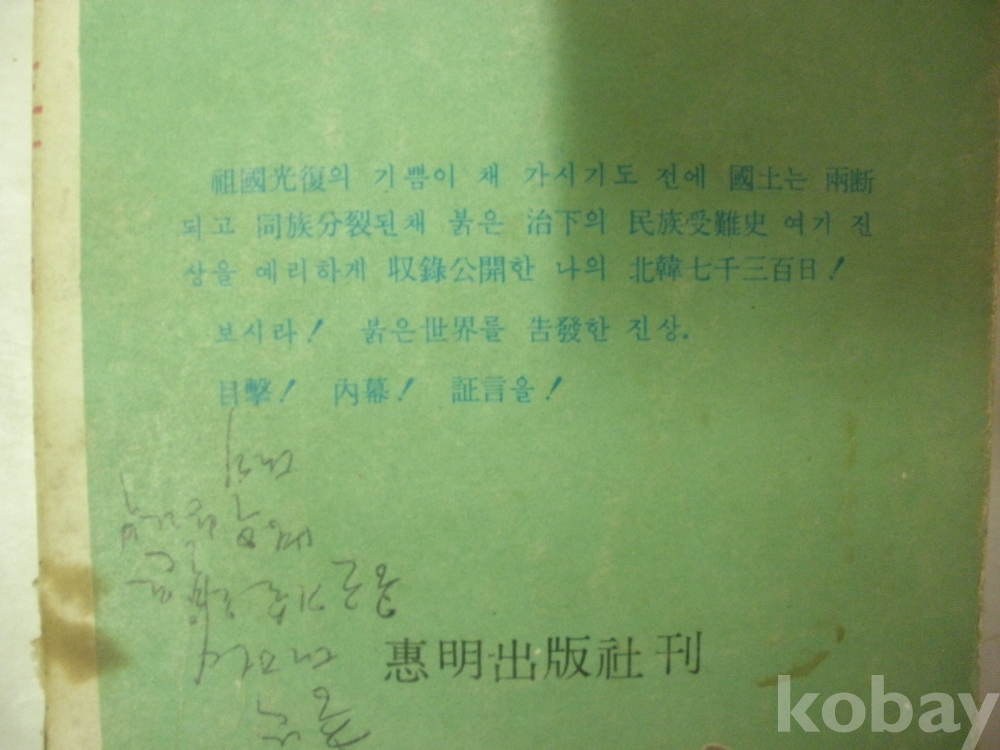 祖國光復의 기쁨이 채 가시기도 전에 國土는 兩断
되고 同族分裂된채 붉은 治下의 民族受難史 여기 진
상을 예리하게 収錄公開한 나의 北韓七千三百日!
보시라! 붉은世界를 告發한 진상.
目擊! 內幕! 証言을!
惠明出版社刊
kobay